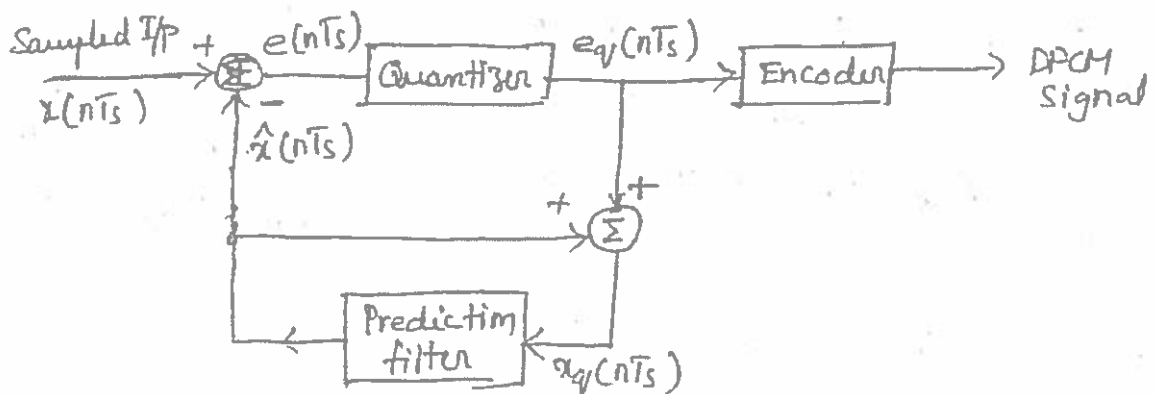 Sampled I/p
+
e(nTs)
Quantizer
eq(nTs)
Encoder
DPCM
Signal
x(nTs)
Σ
-
x̂(nTs)
+
+
Σ
Prediction
filter
xq(nTs)